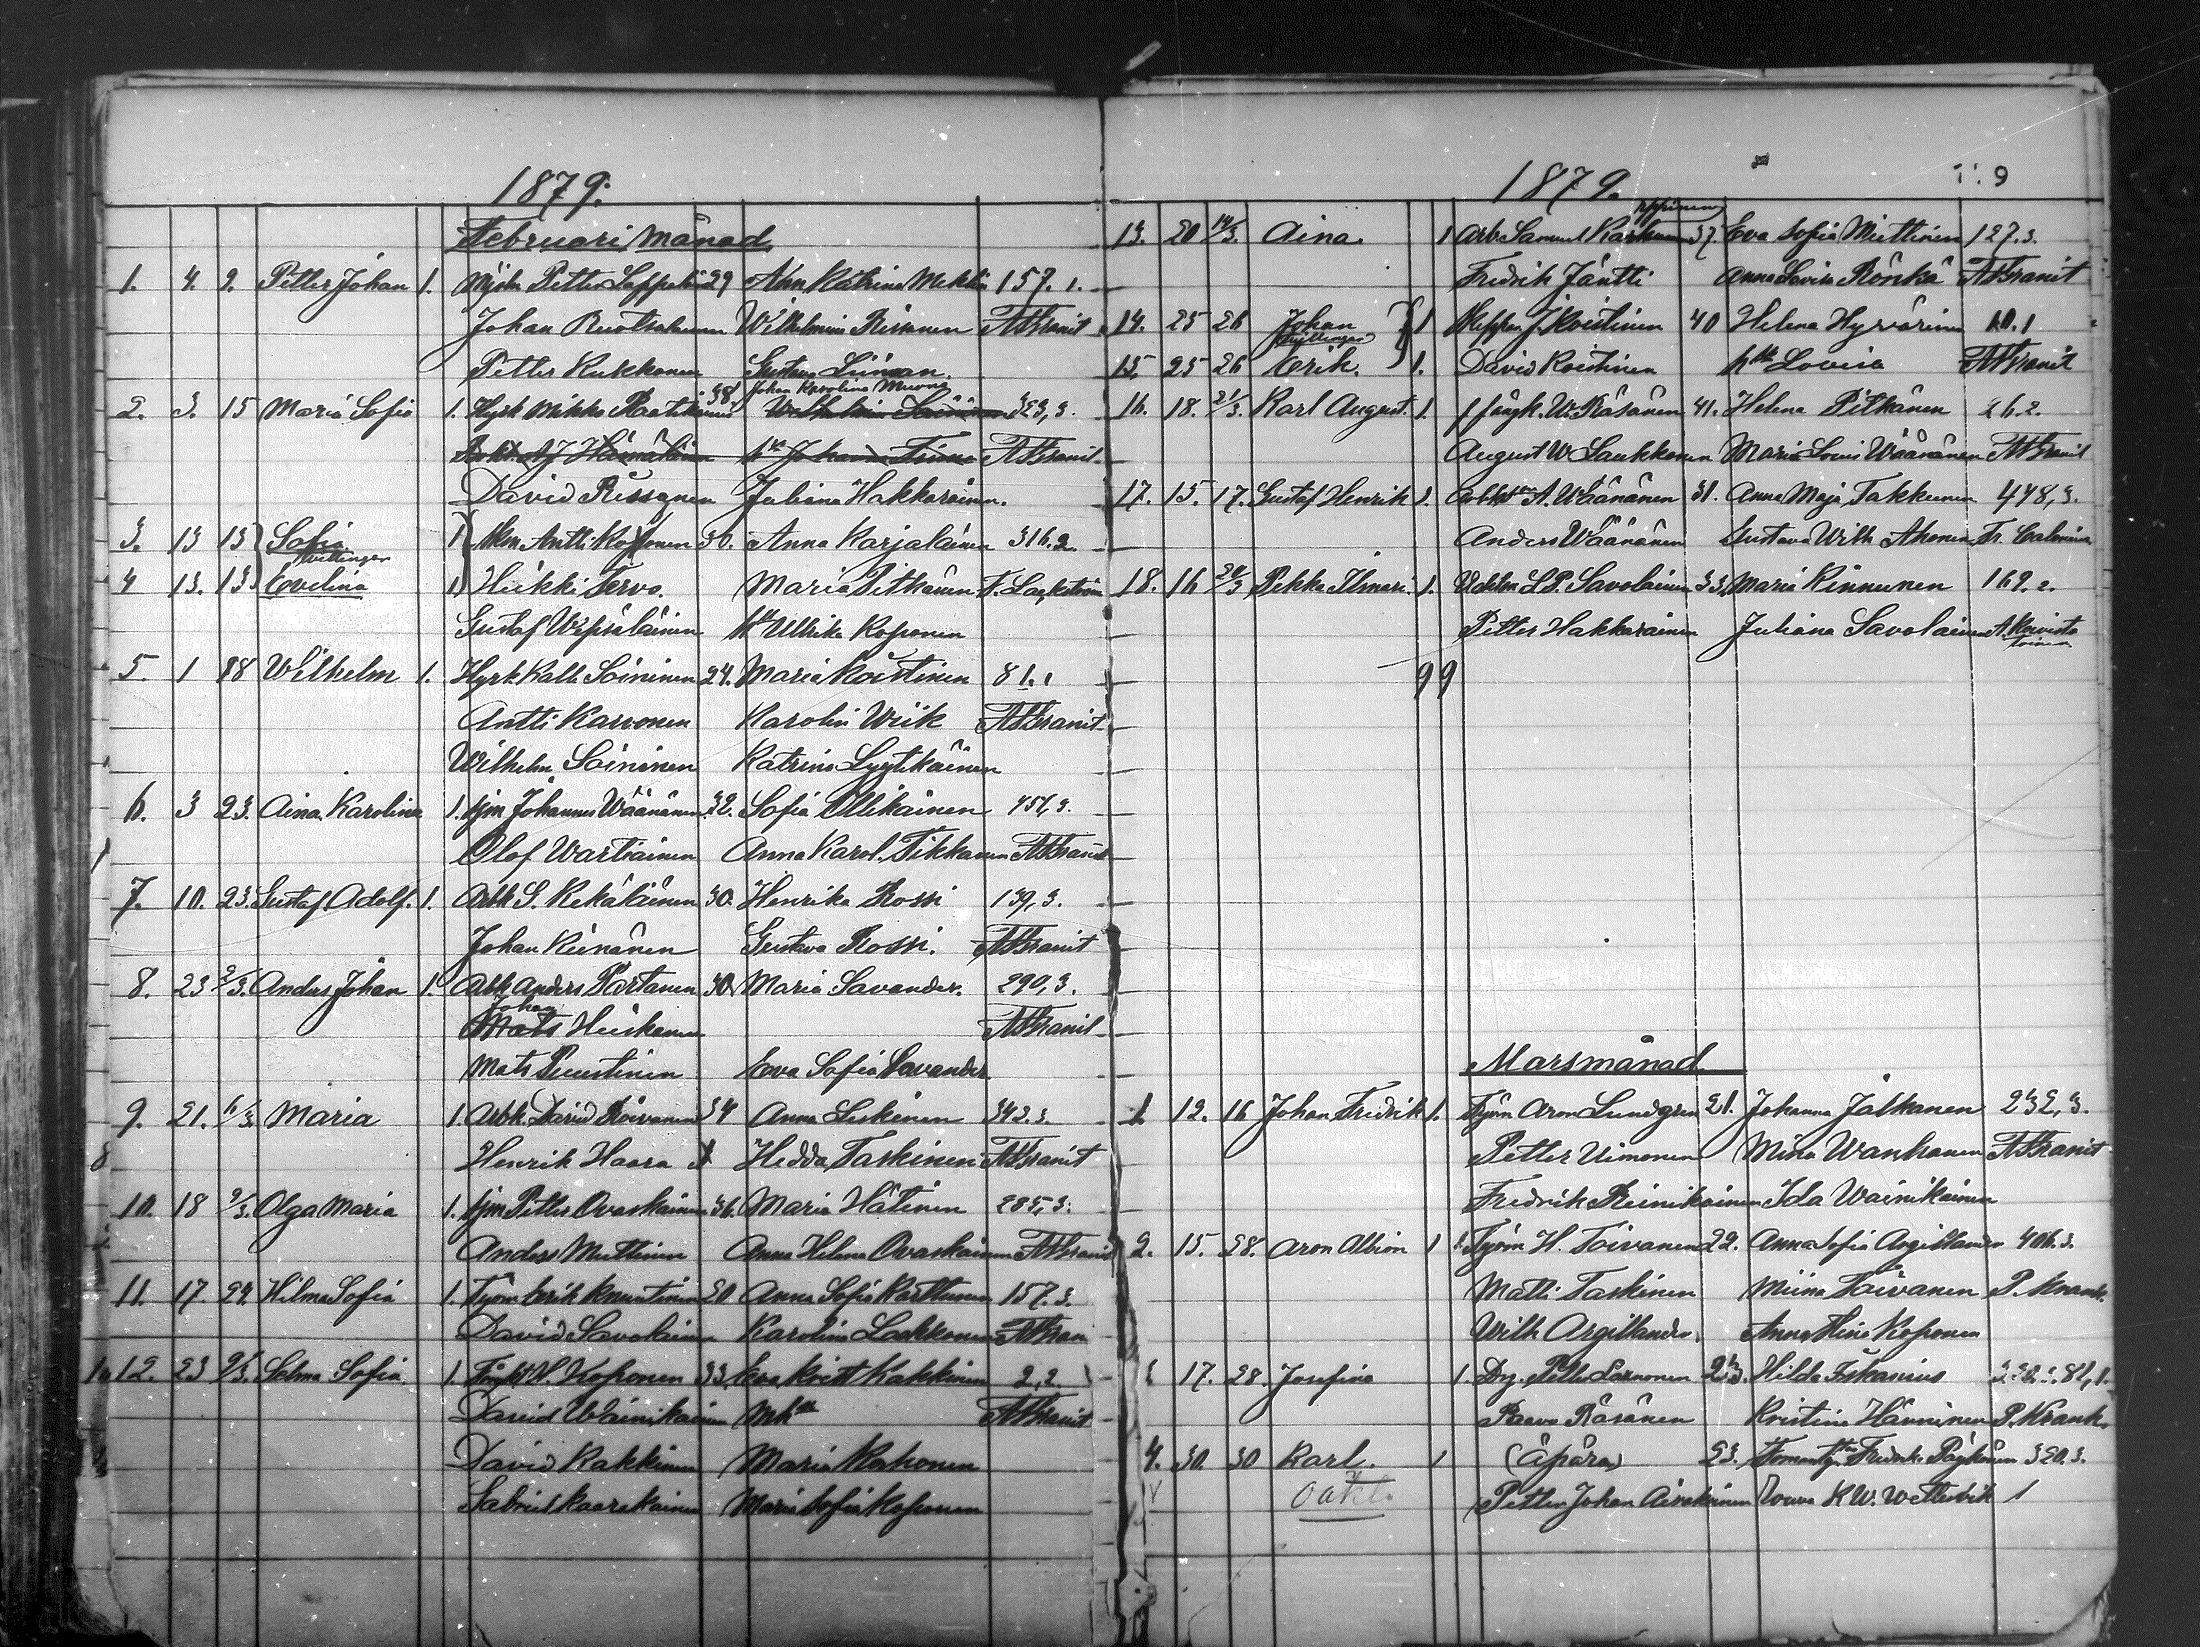 1879.
Februari månad
1. 4. 9. Petter Johan 1. Petter 29 Katrina 157. 1.
Johan Ruotsalainen Wilhelmina Rissanen A Granit
Petter Kukkonen Gustava
Johan Karolina
2. 3. 15 Maria Sofia 1. Hysk Mikko 38. 323, 3.
A Granit
David Rissanen Juliana Hakkarainen.
3. 13 13 Sofia 1 Antti Koponen 30. Anna Karjalainen 316. 2.
tvillingar
4 13. 13 Evelina 1 Heikki Tervo. Maria Pitkänen F.
Gustaf Wepsäläinen Ullrika Koponen
5. 1 18 Wilhelm 1. Hyrk Kalle Soininen 24. Maria Koistinen 81. 1
Antti Karvonen Karolin Weik A Granit
Wilhelm Soininen Katrina Lyytikäinen
6. 3 23. Aina Karolina 1. Johannes Wäänänen 32. Sofia Ollikainen 457, 3.
Olof Wartiainen Anna Karol. Tikkanen A Granit
7. 10. 23. Gustaf Adolf. 1. Arbk S. Kekäläinen 30. Henrika Rossi 139, 3.
Johan Keinänen Gustava Rossi. A Granit
8. 23 2/3. Anders Johan 1. Arbk Anders Partanen 30 Maria Savander. 290, 3.
Johan
Mats Heiskanen A Granit
Mats Puustinen Eva Sofia Savander
9. 21. 6/3. Maria 1. Arbk. David Roivanen 34 Anna Leskinen 342. 3.
Henrik Haara Hedda Taskinen A Granit
10. 18 9/3. Olga Maria 1. Petter Ovaskainen 36. Maria Hätinen 285, 3.
Anders Muttinen Anna Helena Ovaskainen A Granit
11. 17. 24. Hilma Sofia 1. Työm Erik Knuutinen 30 Anna Sofia Karttunen 157. 3.
David Savolainen Karolina Laakkonen A Gran
12. 23 Selma Sofia. 1. Koponen 33. Eva Krist Kakkinen 2, 2.
David Wäinikainen A Granit
David Kakkinen Maria Kaponen
Gabriel Kaarakainen Maria Sofia Koponen
1879.
ppinen
13. 20 14/3. Aina. 1 Arb Samuel 37. Eva Sofia Miettinen 127. 3.
Fredrik Jäntti Anna Lovisa Rönkä A Granit
14. 25 26 Johan 1 J. Koistinen 40 Helena Hyvärinen 10. 1
tvillingar
15. 25 26 Erik. 1. David Koistinen Lovisa A Granit
16. 18. 21/3. Karl August. 1. W. Räsänen 41. Helena Pitkänen 26. 2.
August W Laukkanen Maria Lovis Wäänänen A Granit
17. 15. 17. Gustaf Henrik 1. A. Wäänänen 31. Anna Maja Takkunen 478, 3.
Anders Wäänänen Gustava Wilh Ahonen Fr. Calonius
18. 16 20/3 Pekka Ilmari. 1. L P. Savolainen 33. Maria Kinnunen 169. 2.
Petter Hakkarainen Juliana Savolainen A. Koivisto
99
Marsmånad
1. 12. 16 Johan Fredrik 1. Työm Aron Lundgren 21. Johanna Jalkanen 232, 3.
Petter Uimonen Mina Wanhanen A Granit
Fredrik Reinikainen Ida Wainikainen
2. 15. 28. Aron Albion 1 Työm H. Toivanen 22. Anna Sofia Argillander 406. 3.
Matti Taskinen Miina Toivanen P. Krank.
Wilh Argillander. Anna Stina Koponen
17. 28. Josefina 1. Petter Hilda 81, 1.
Paavo Räsänen Kristina Hänninen P. Krank.
4. 30. 30 Karl. 1 (Äpärä) 23. 320. 3.
oäkt.
Petter Johan Airaksinen Rouva K W. 1